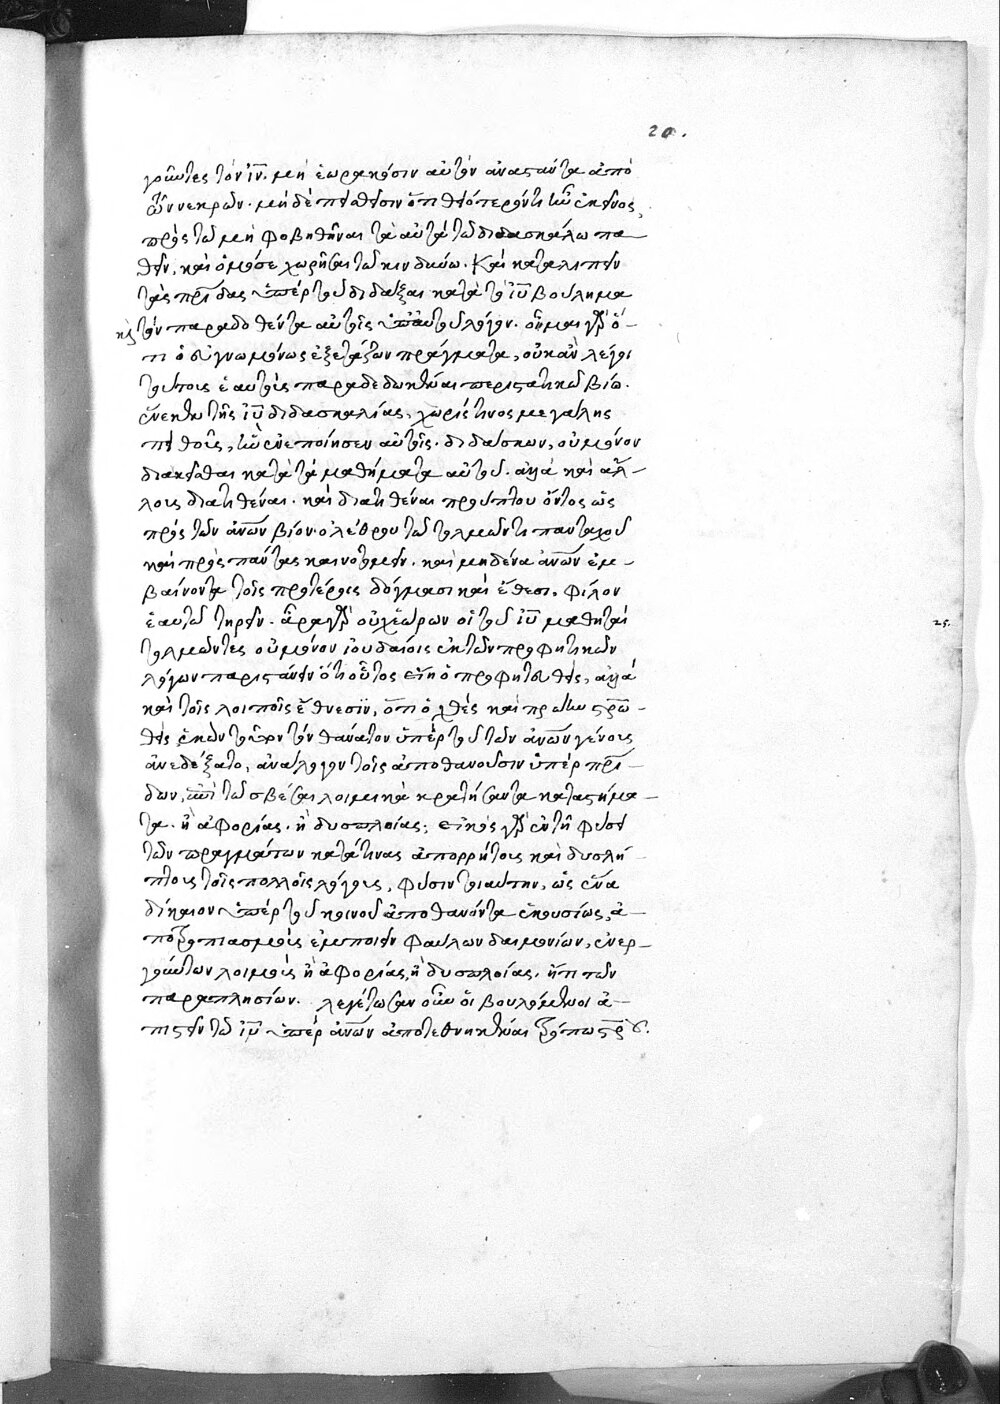 20.
γόντες τὸν ἰν̅. μὴ ἑωρακόσιν αὐτὸν ἀναστάντα ἀπὸ
τῶν νεκρῶν. μηδὲ πεισθεῖσιν ὅτι θειότερόν τι ἦν ἐκεῖνος,
πρὸς τῷ μὴ φοβηθῆναι τὰ αὐτὰ τῷ διδασκάλῳ πα-
θεῖν, καὶ ὁμόσε χωρῆσαι τῷ κινδύνῳ. Καὶ καταλιπεῖν
τὰς πρ̅ίδας ὑπὲρ τοῦ διδάξαι κατὰ τὸ ἰυ̅ βούλημα
τὸν παραδοθέντα αὐτοῖς ὑπ' αὐτοῦ λόγον. οἶμαι γὰρ ὅ-
τι ὁ εὐγνωμόνως ἐξετάζων πράγματα, οὐκ ἂν λέγοι
τούτους ἑαυτοὺς παραδεδωκέναι περιστατικῷ βίῳ.
ἕνεκεν τῆς ἰυ̅ διδασκαλίας, χωρίς τινος μεγάλης
πειθοῦς, ἣν ἐνεποίησεν αὐτοῖς. διδάσκων, οὐ μόνον
διακεῖσθαι κατὰ τὰ μαθήματα αὐτοῦ. ἀλλὰ καὶ ἄλ-
λους διατιθέναι. καὶ διατιθέναι προύπτου ὄντος ὡς
πρὸς τὸν ἀν̅ων βίον ὀλέθρου τῷ τολμῶντι πανταχοῦ
καὶ πρὸς πάντας καινοτομεῖν. καὶ μηδένα ἀν̅ων ἐμ-
βαίνοντα τοῖς προτέροις δόγμασι καὶ ἔθεσι. φίλον
ἑαυτῷ τηρεῖν. ἆρα γὰρ οὐχ ἑώρων οἱ τοῦ ἰυ̅ μαθηταὶ
τολμῶντες οὐ μόνον ἰουδαίοις ἐκ τῶν προφητικῶν
25.
λόγων παριστάνειν ὅτι οὗτος εἴη ὁ προφητευθεὶς, ἀλλὰ
καὶ τοῖς λοιποῖς ἔθνεσιν, ὅτι ὁ χθὲς καὶ πρώην στρ̅ω-
θεὶς ἑκὼν τοῦτον τὸν θάνατον ὑπὲρ τοῦ τῶν ἀν̅ων γένους
ἀνεδέξατο, ἀνάλογον τοῖς ἀποθανοῦσιν ὑπὲρ πρ̅ί-
δων, ἐπὶ τῷ σβέσαι λοιμικὰ κρατήσαντα καταστήμα-
τα. ἢ ἀφορίας. ἢ δυσπλοίας; εἰκὸς γὰρ ἐν τῇ φύσει
τῶν πραγμάτων κατά τινας ἀπορρήτους καὶ δυσλή-
πτους τοῖς πολλοῖς λόγους, φύσιν τοιαύτην, ὡς ἕνα
δίκαιον ὑπὲρ τοῦ κοινοῦ ἀποθανόντα ἑκουσίως, ἀ-
ποτροπιασμοὺς ἐμποιεῖν φαύλων δαιμονίων, ἐνερ-
γούντων λοιμοὺς ἢ ἀφορίας, ἢ δυσπλοίας. ἤ τι τῶν
παραπλησίων. λεγέτωσαν οὖν οἱ βουλόμενοι ἀ-
πιστεῖν τῷ ἰυ̅ ὑπὲρ ἀν̅ων ἀποτεθνηκέναι τρόπῳ στρ̅ου.